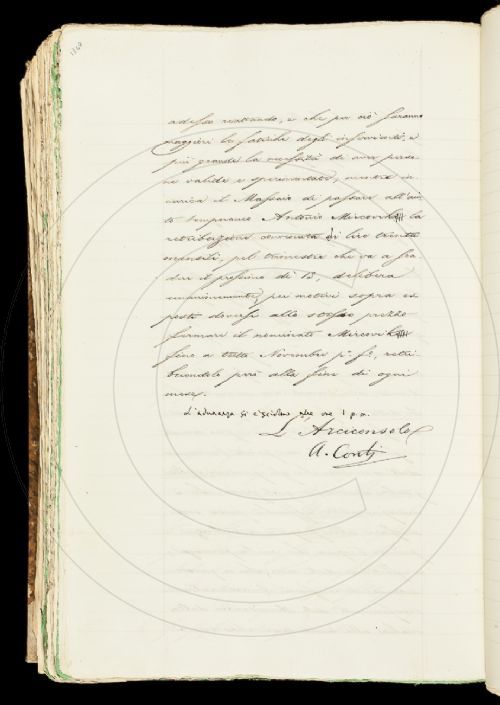 1860
adesso restando, e che per ciò saranno
maggiori le fatiche degli inservienti, e
più grande la necessità di aver perso-
ne valide e sperimentate, mentre in-
carica il Massaio di passare all'aiu-
to temporaneo Antonio Mircovich la
retribuzione di lire trenta
mensili, pel trimestre che va a sca-
dere il prossimo dì 15, delibera
unanimamente, pei motivi sopra es
posti doversi allo stesso
fermare il nominato Mircovich
fino a tutto Novembre p.º f.º, retri-
buendolo però alla fine di ogni
mese.
L'adunanza si è sciolta alle ore 1 p.m.
L'Arciconsolo
A. Conti